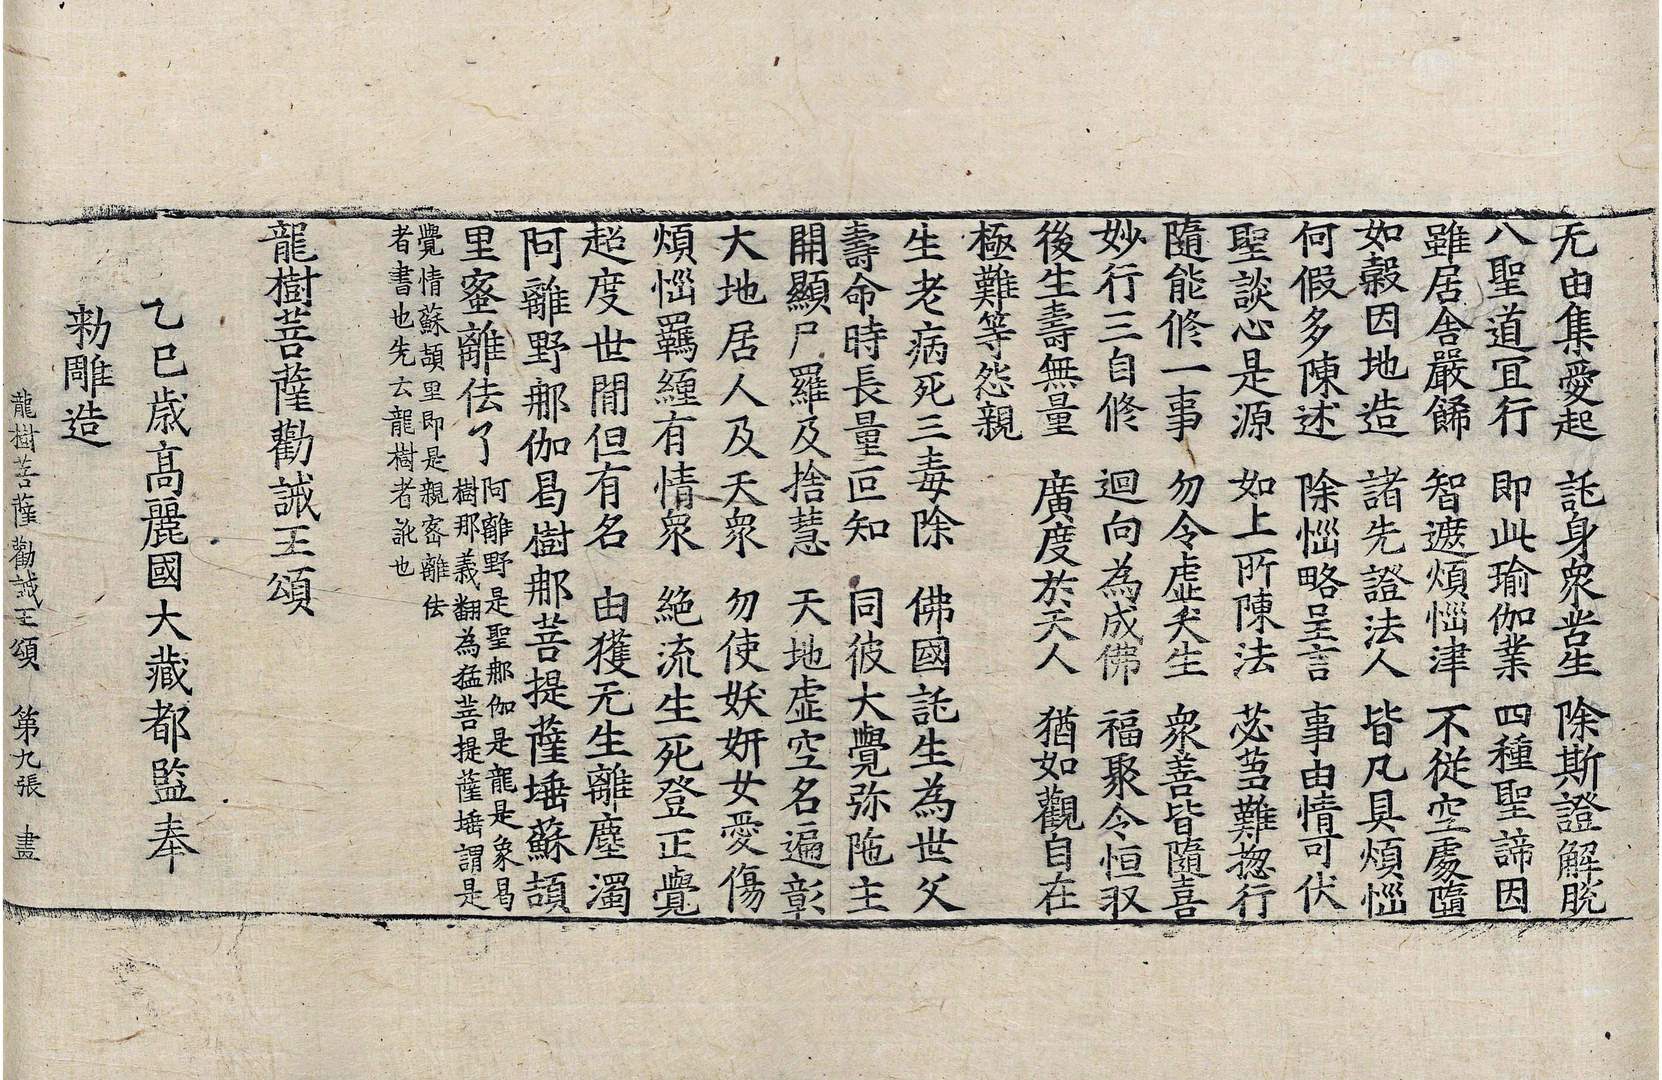 无由集愛起 託身衆苦生 除斯證解脫
八聖道冝行 即此瑜伽業 四種聖諦因
雖居舎嚴餙 智遮煩惱津 不從空處墮
如穀因地造 諸先證法人 皆凡具煩惱
何假多陳述 除惱略呈言 事由情可伏
聖談心是源 如上所陳法 苾蒭難揔行
隨能修一事 勿令虛夫生 衆善皆隨喜
妙行三自修 迴向為成佛 福聚令恒収
後生壽無量 廣度於天人 猶如觀自在
極難等怨親
生老病死三毒除 佛國託生為世父
壽命時長量叵知 同彼大覺弥陁主
開顯尸羅及捨慧 天地虛空名遍彰
大地居人及天衆 勿使妖妍女愛傷
煩惱羈纏有情衆 絶流生死登正覺
超度世閒但有名 由獲无生離塵濁
阿離野那伽曷樹那菩提薩埵蘇頡
里蜜離佉了 阿離野是聖那伽是龍是象曷
樹那義翻為猛菩提薩埵謂是
覺情蘇頡里即是親密離佉
者書也先云龍樹者訛也
龍樹菩薩勸誡王頌
乙巳歲高麗國大藏都監奉
勑雕造
龍樹菩薩勸誡王頌 第九張 畫